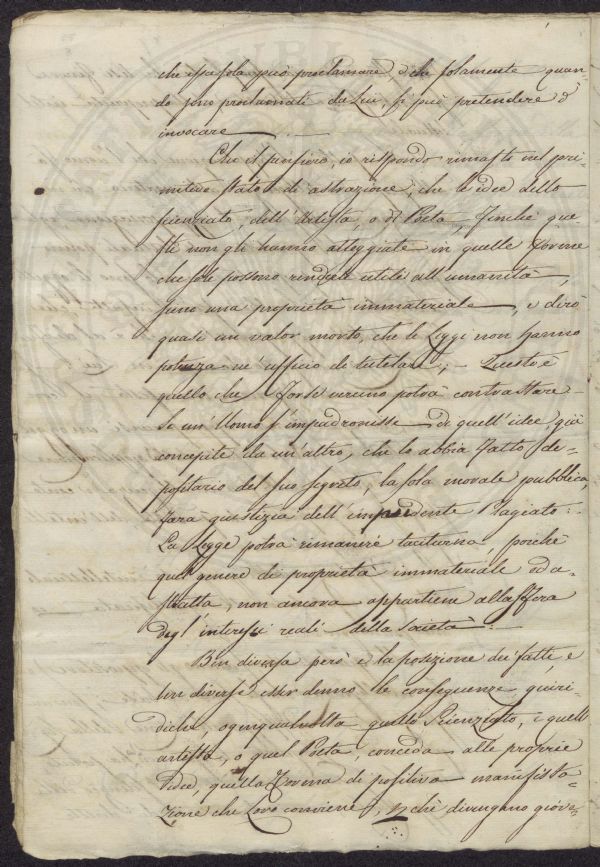 che essa sola può proclamare, e che solamente quan-
do sono proclamati da Lui, si può pretendere d'
invocare.
Che il pensiero, io rispondo rimasto nel pri-
mitivo stato di astrazione, che le idee dello
scienziato, dell'Artista, o di Poeta finchè que-
ste non gli hanno atteggiate in quelle Forme
che sole possono renderle utili all'umanità,
sono una proprietà immateriale, e dirò
quasi un valor morto, che le Leggi non hanno
potenza nè ufficio di tutelare; - Questo è
quello che forse veruno potrà contrastare.
Se un'Uomo s'impadronisse di quell'idee già
concepite da un'altro, che lo abbia fatto de-
positario del suo segreto, la sola morale pubblica,
farà giustizia dell'impudente Plagiato:
La Legge potrà rimanere taciturna, perchè
quel genere di proprietà immateriale od a-
stratta, non ancora appartiene alla sfera
degl'interessi reali della società.
Ben diversa però è la posizione dei fatti e
ben diverse esser denno le conseguenze giuri-
diche, ogniqualvolta quello Scienziato, e quell'
artista, o quel Poeta, conceda alle proprie
Idee, quella Forma di positiva manifesta-
zione che Loro conviene, che divengano giova-